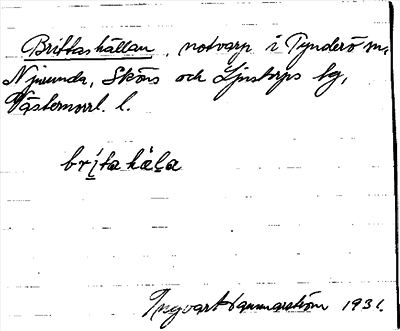 Brittashällan, notvarp i Tynderö m,
Njurunda, Sköns och Ljustorps tg,
Västernorrl. l.
brı́tahäļa
Ingvar Hammarström 1931.